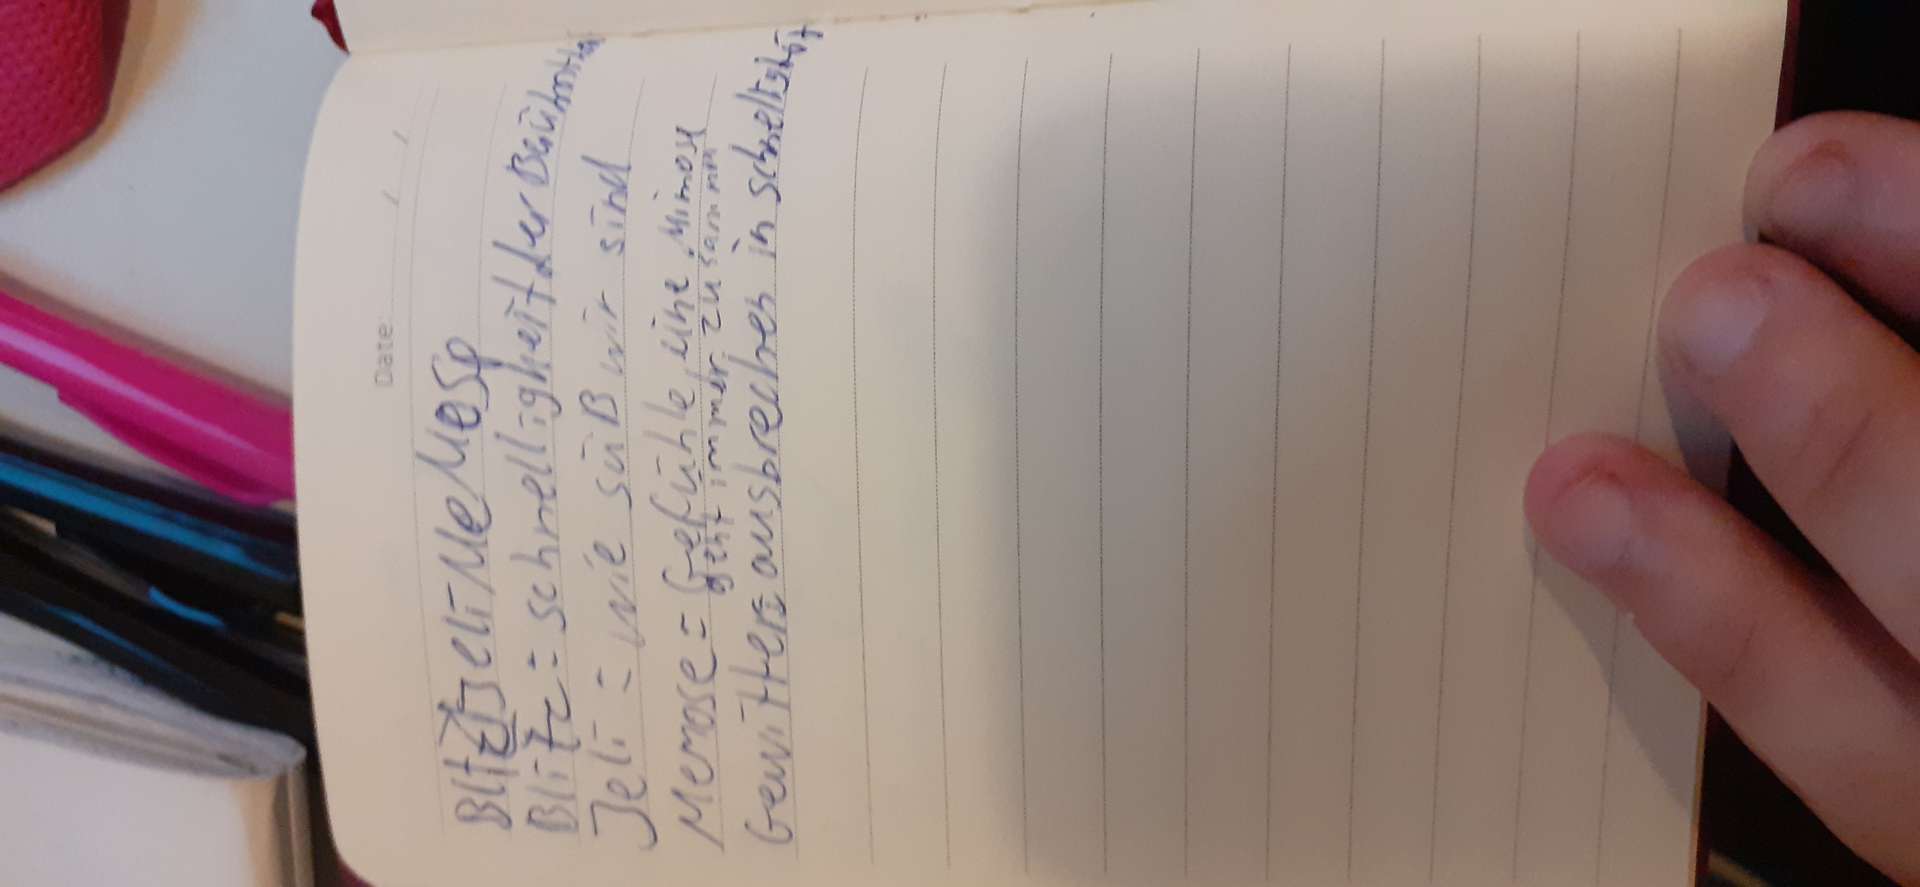 Date: / /
Blitz Jeli Meose
Blitz = schnelligkeit der Berühmtheit
Jeli = wie süß wir sind
Memose = Gefühle eine Mimose
geht immer zusammen
Gewitter ausbrechen in